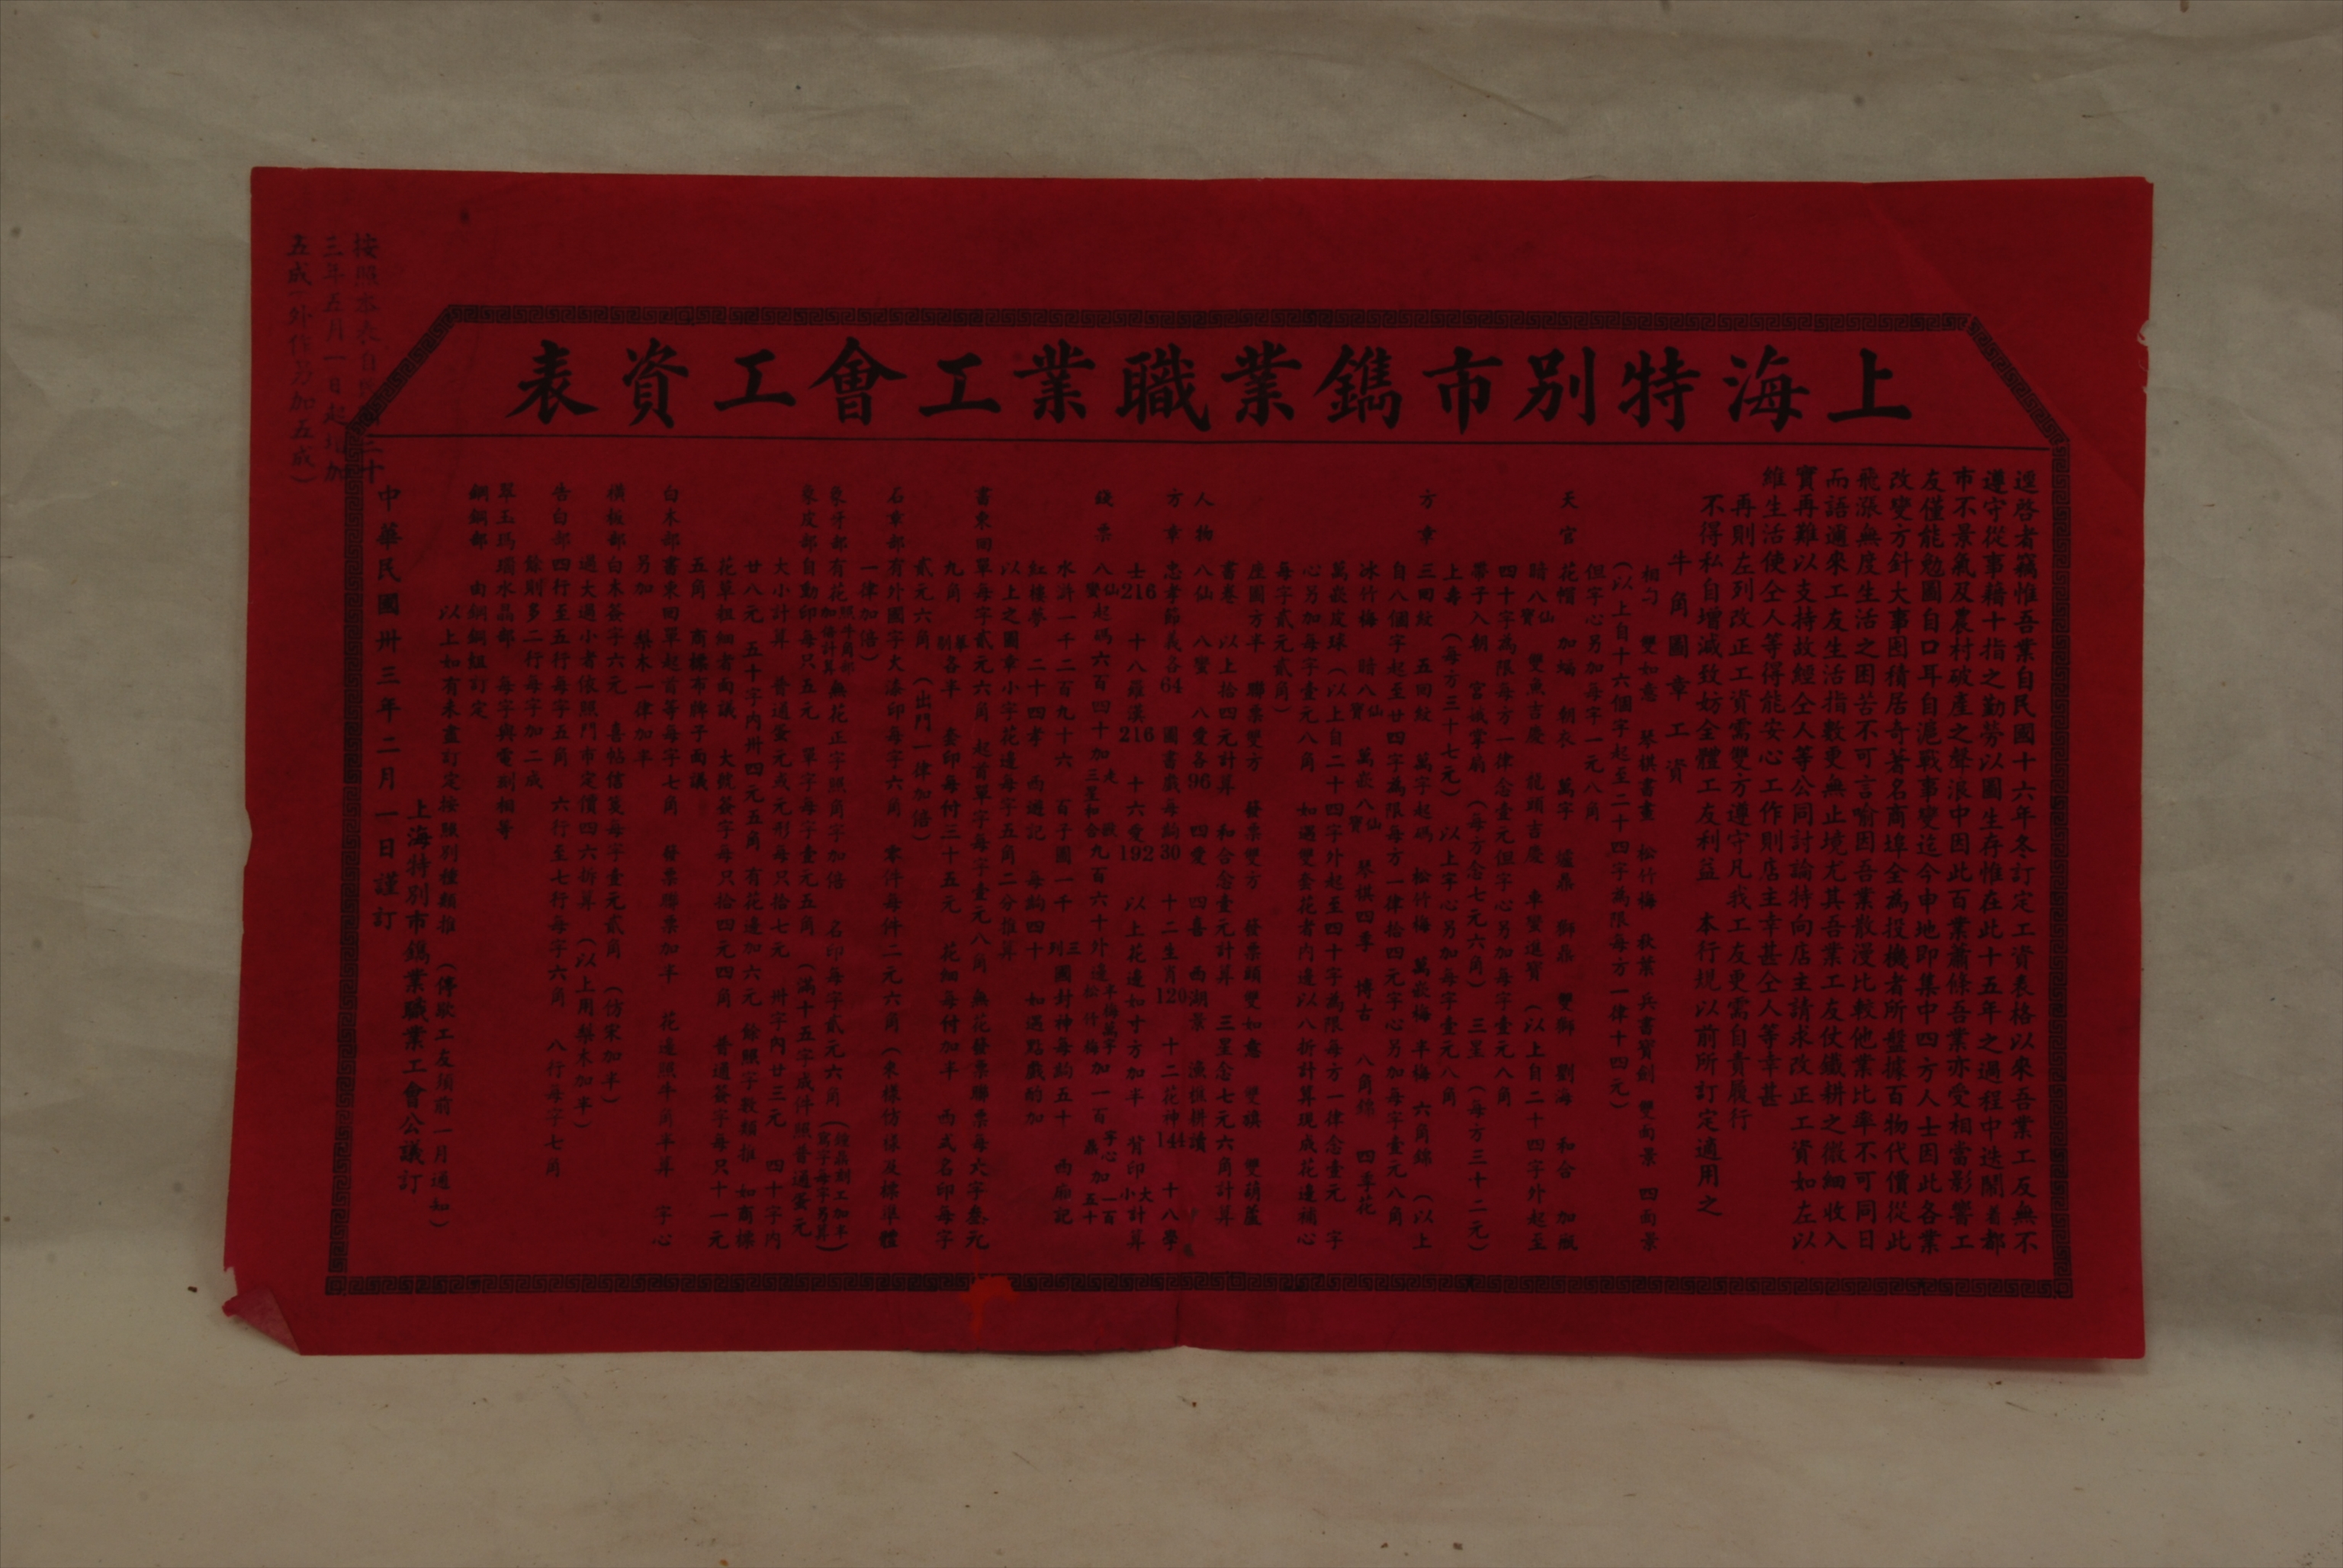 上海特別市鐫業職業工會工資表
逕啓者竊惟吾業自民國十六年冬訂定工資表格以來吾業工友無不
遵守從事藉十指之勤勞以圖生存惟在此十五年之過程中迭鬧着都
市不景氣及農村破產之聲浪中因此百業蕭條吾業亦受相當影響工
友僅能勉圖自口耳自滬戰事變迄今申地即集中四方人士因此各業
改變方針大事囤積居奇著名商埠全為投機者所盤據百物代價從此
飛漲無度生活之困苦不可言喻因吾業散漫比較他業比率不可同日
而語邇來工友生活指數更無止境尤其吾業工友仗鐵耕之微細收入
實再難以支持故經仝人等公同討論特向店主請求改正工資如左以
維生活使仝人等得能安心工作則店主幸甚仝人等幸甚
再則左列改正工資需雙方遵守凡我工友更需自責履行
不得私自增減致妨全體工友利益 本行規以前所訂定適用之
牛角圖章工資
相勻 雙如意 琴棋書畫 松竹梅 秋葉 兵書寶劍 雙面景 四面景
(以上自十六個字起至二十四字為限每方一律十四元)
但字心另加每字一元八角
天官 花幗 加蝠 朝衣 萬字 爐鼎 獅鼎 雙獅 劉海 和合 加瓶
暗八仙寶 雙魚吉慶 龍頭吉慶 車蠻進寶 (以上自二十四字外起至
四十字為限每方一律念壹元但字心另加每字壹元八角
帶子入朝 宮城掌扇 (每方念七元六角) 三星 (每方三十二元)
上壽 (每方三十七元) 以上字心另加每字壹元八角
方章 三回紋 五回紋 萬字起碼 松竹梅 萬嵌梅 半梅 六角錦 (以上
自八個字起至廿四字為限每方一律拾四元字心另加每字壹元八角
冰竹梅 暗八仙寶 萬嵌八仙寶 琴棋四季 博古 八角錦 四季花
萬嵌皮球 (以上自二十四字外起至四十字為限每方一律念壹元 字
心另加每字壹元八角 如遇雙套花者內邊以八折計算現成花邊補心
每字貳元貳角)
座圖方半 聯票雙方 發票雙方 發票頭雙如意 雙旗 雙葫蘆
書卷 以上拾四元計算 和合念壹元計算 三星念七元六角計算
人物 八仙 八蠻 八愛各96 四愛 四喜 西湖景 漁樵耕讀
方章 忠孝節義各64 圖書戲每齣30 十二生肖120 十二花神144 十八學
士216 十八羅漢216 十六愛192 以上花邊如寸方加半 背印大小計算
錢票 八仙蠻起碼六百四十加 三星和合九百六十外邊 松竹梅加一百 字心一百 鼎加五十
水滸一千二百九十六 百子圖一千 三列國封神每齣五十 西廂記
紅樓夢 二十四孝 西遊記 每齣四十 如遇點戲酌加
以上之圖章小字花邊每字五角二分推算
書柬回單每字貳元六角 起首單字每字壹元八角 無花發票聯票每六字叁元
九角 各半 套印每付三十五元 花細每付加半 西式名印每字
貳元六角 (出門一律加倍)
石章部 有外國字火漆印每字六角 零件每件二元六角 (來樣仿樣及標準體
一律加倍)
象牙部 有花照牛角部加倍計算 無花正字照角字加倍 名印每字貳元六角
象皮部 自動印每只五元 單字每字壹元五角 (滿十五字成件照普通蛋元
大小計算 普通蛋元或元形每只拾七元 卅字內廿三元 四十字內
廿八元 五十字內卅四元五角 有花邊加六元 餘照字數類推 如商標
花草粗細者面議 大號簽字每只拾四元四角 普通簽字每只十一元
五角 商標布牌子面議
白木部 書柬回單起首等每字七角 發票聯票加半 花邊照牛角半算 字心
另加 梨木一律加半
橫板部 白木簽字六元 喜帖信箋每字壹元貳角 (仿宋加半)
過大過小者依照門市定價四六拆算 (以上用梨木加半)
告白部 四行至五行每字五角 六行至七行每字六角 八行每字七角
餘則多二行每字加二成
翠玉瑪瑙水晶部 每字與電刻相等
銅鋼部 由銅鋼組訂定
以上如有未盡訂定按照別種類推 (停歇工友須前一月通知)
上海特別市鐫業職業工會公議訂
中華民國卅三年二月一日謹訂
按照本表自 三十
三年五月一日起 加
五成(外作另加五成)